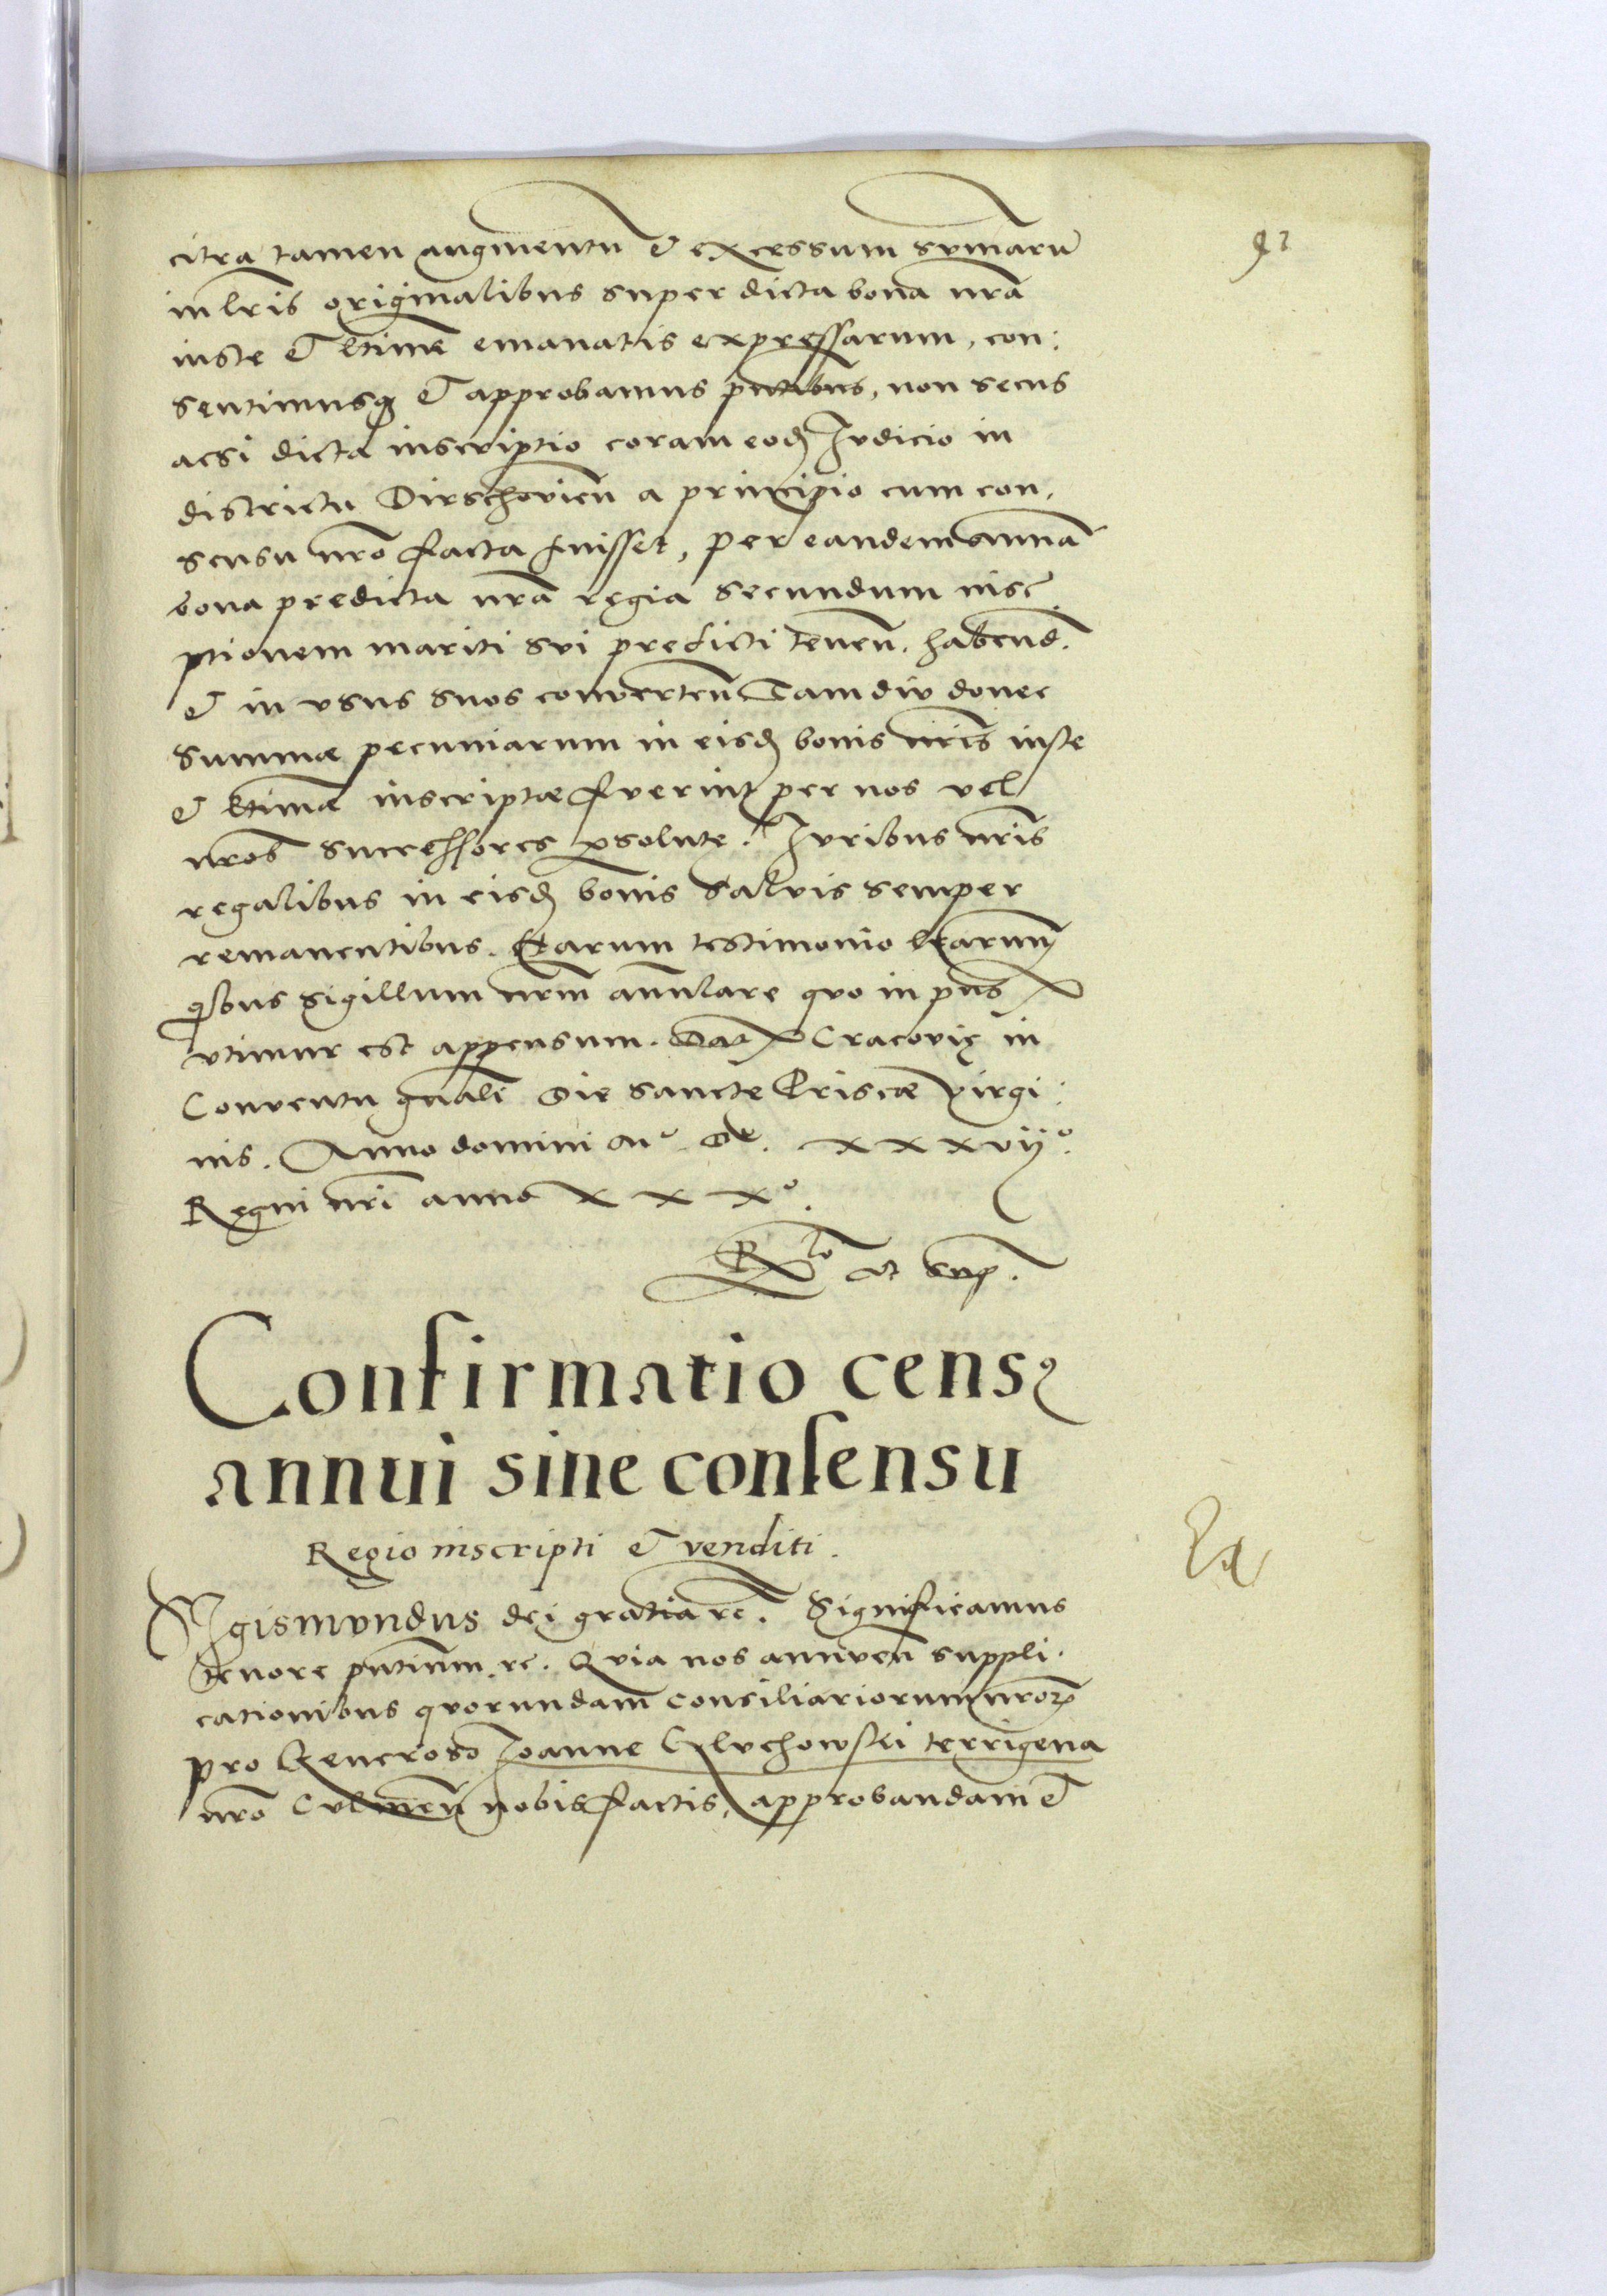 92
citra tamen augmentū et excessum sūmarū
in lrīs originalibus super dicta bona nrā
iuste et ltīme emanatis expressarum, con:
sentimusq et approbamus pntibus, non secus
acsi dicta inscriptio coram eod Iudicio in
districtu Dirschovien̄ a principio cum con,
sensu nrō facta fuisset, per eandem annā
bona predicta nrā regia secundum inscr̄
ptionem mariti sui predicti tenen̄. habend̄.
et in usus suos converten̄ Tam diu donec
summæ pecuniarum in eisd bonis nrīs iuste
et ltīme inscriptæ fuerint per nos vel
nrōs successores psolutę. Iuribus nrīs
regalibus in eisd bonis salvis semper
remanentibus. Harum testimonio lrārum
qibus sigillum nrm̄ annulare quo in pns̄
utimur est appensum. Dat Cracovię in
Conventu gnali Die sancte Priscæ virgi:
nis. Anno domini Mº. Dº. xxxvijº.
Regni nrī anno xxxº.
Rlō ut sup̄.
Confirmatio censꝯ
annui sine consensu
Regio inscripti et venditi.
Sigismundus dei gratia rc̄. Significamus
tenore pntium̄. rc. Quia nos annuen̄ suppli.
cationibus quorundam consiliariorum nrorꝝ
pro Generoso Ioanne Gluchowski terrigena
nrō Culmen̄ nobis factis, approbandam et